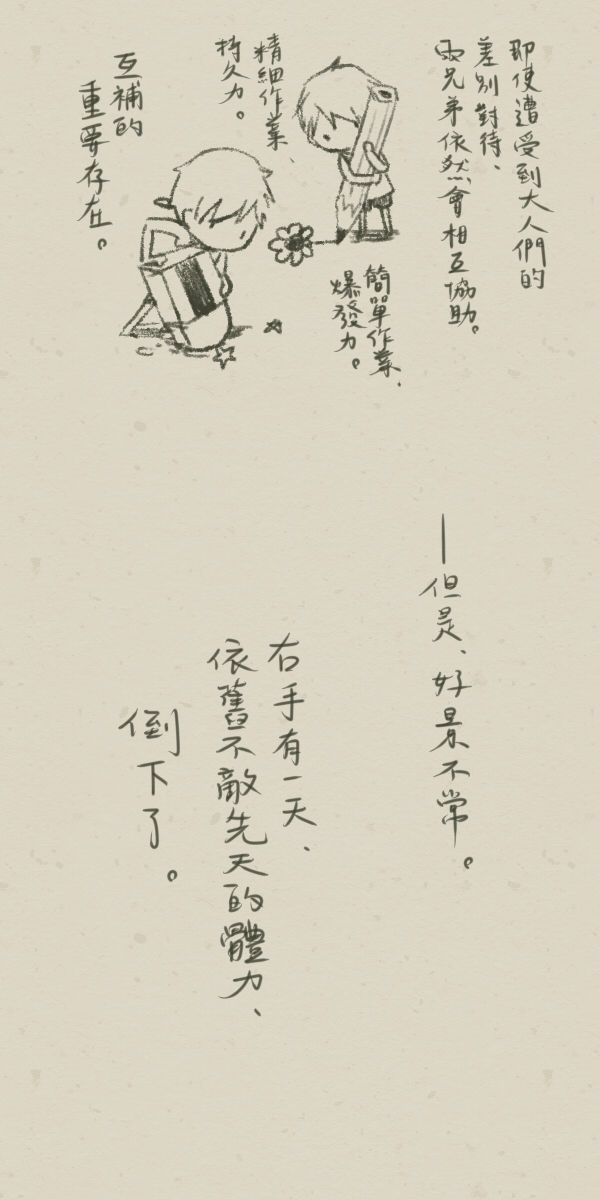 即使遭受到大人們的
差別對待、
兩兄弟依然會相互協助。
簡單作業、
爆發力。
精細作業、
持久力。
互補的
重要存在。
—但是、好景不常。
右手有一天、
依舊不敵先天的體力、
倒下了。